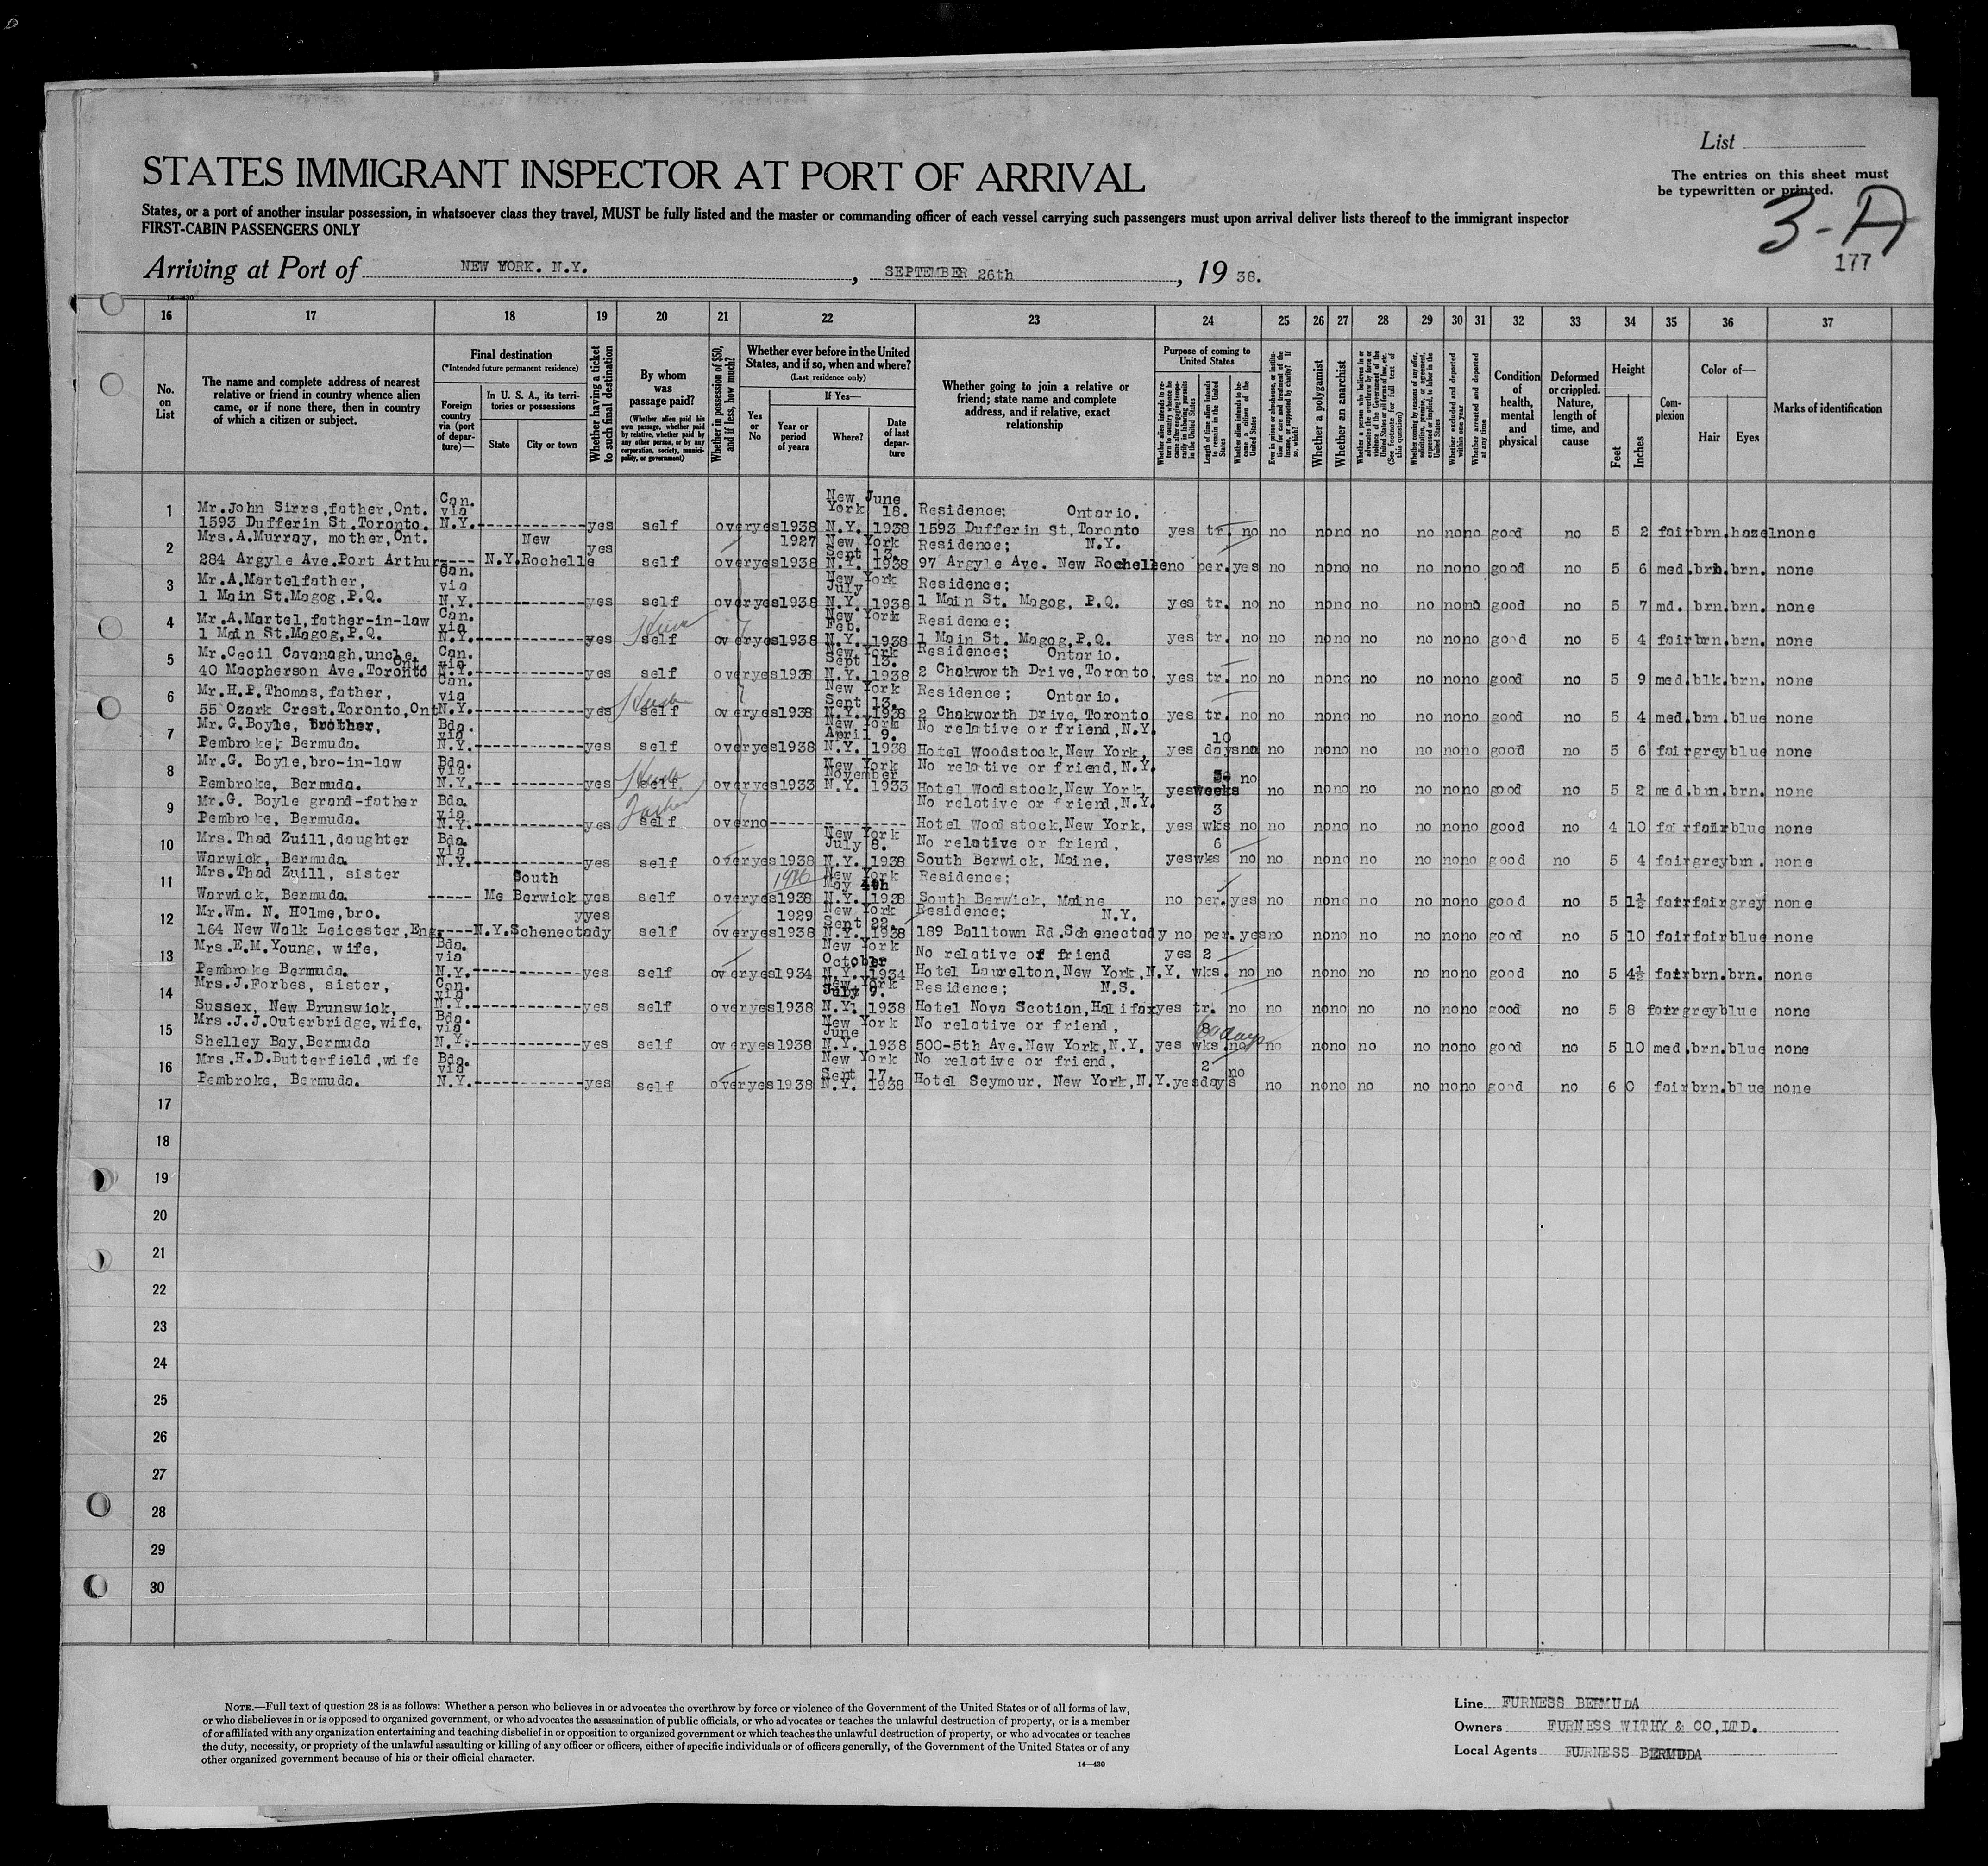 List
The entries on this sheet must
be typewritten or printed.
3-A
177
STATES IMMIGRANT INSPECTOR AT PORT OF ARRIVAL
States, or a port of another insular possession, in whatsoever class they travel, MUST be fully listed and the master or commanding officer of each vessel carrying such passengers must upon arrival deliver lists thereof to the immigrant inspector
FIRST-CABIN PASSENGERS ONLY
Arriving at Port of NEW YORK. N.Y. , SEPTEMBER 26th , 19 38.
14—430
16 17 18 19 20 21 22 23 24 25 26 27 28 29 30 31 32 33 34 35 36 37
No. on List
The name and complete address of nearest relative or friend in country whence alien came, or if none there, then in country of which a citizen or subject.
Final destination
(*Intended future permanent residence)
Foreign country via (port of departure)—
In U. S. A., its territories or possessions
State City or town
Whether having a ticket to such final destination
By whom was passage paid?
(Whether alien paid his own passage, whether paid by relative, whether paid by any other person, or by any corporation, society, municipality, or government)
Whether in possession of $50, and if less, how much?
Whether ever before in the United States, and if so, when and where?
(Last residence only)
Yes or No
If Yes—
Year or period of years
Where?
Date of last departure
Whether going to join a relative or friend; state name and complete address, and if relative, exact relationship
Purpose of coming to United States
Length of time alien intends to remain in the United States
Whether alien intends to become a citizen of the United States
Whether a polygamist
Whether an anarchist
Whether excluded and deported within one year
Whether arrested and deported at any time
Condition of health, mental and physical
Deformed or crippled. Nature, length of time, and cause
Height
Feet Inches
Complexion
Color of—
Hair Eyes
Marks of identification
1 Mr.John Sirrs,father,Ont. Can. via New York June 18. Residence: Ontario.
1593 Dufferin St.Toronto. N.Y. yes self over yes 1938 N.Y. 1938 1593 Dufferin St,Toronto yes tr. no no no no no no no no good no 5 2 fair brn. hazel none
2 Mrs.A.Murray, mother,Ont. New yes 1927 New York Sept 13. Residence; N.Y.
284 Argyle Ave.Port Arthur N.Y. Rochelle self over yes 1938 N.Y. 1938 97 Argyle Ave. New Rochelle no per. yes no no no no no no no good no 5 6 med. brn. brn. none
3 Mr.A.Martelfather, Can. via New York July Residence;
1 Main St.Magog,P.Q. N.Y. yes self over yes 1938 N.Y. 1938 1 Main St. Magog, P.Q. yes tr. no no no no no no no no good no 5 7 md. brn. brn. none
4 Mr.A.Martel,father-in-law Can. via New York Feb. Residence;
1 Main St.Magog,P.Q. N.Y. yes self over yes 1938 N.Y. 1938 1 Main St. Magog,P.Q. yes tr. no no no no no no no no good no 5 4 fair brn. brn. none
5 Mr.Cecil Cavanagh,uncle, Ont Can. via New York Sept 13. Residence; Ontario.
40 Macpherson Ave.Toronto N.Y. yes self over yes 1938 N.Y. 1938 2 Chakworth Drive,Toronto yes tr. no no no no no no no no good no 5 9 med. blk. brn. none
6 Mr.H.P.Thomas,father, Can. via New York Sept 13. Residence; Ontario.
55 Ozark Crest.Toronto,Ont N.Y. yes self over yes 1938 N.Y. 1938 2 Chakworth Drive, Toronto yes tr. no no no no no no no no good no 5 4 med. brn. blue none
7 Mr.G.Boyle, brother, Bda. via New York April 9. No relative or friend,N.Y. 10
Pembroke, Bermuda. N.Y. yes self over yes 1938 N.Y. 1938 Hotel Woodstock,New York, yes days no no no no no no no no good no 5 6 fair grey blue none
8 Mr.G. Boyle,bro-in-law Bda. via New York November No relative or friend,N.Y. no
Pembroke, Bermuda. N.Y. yes self over yes 1933 N.Y. 1933 Hotel Woodstock,New York, yes weeks no no no no no no no good no 5 2 med. brn. brn. none
9 Mr.G. Boyle grand-father Bda. via No relative or friend,N.Y. 3
Pembroke, Bermuda. N.Y. yes self over no Hotel Woodstock,New York, yes wks no no no no no no no no good no 4 10 fair fair blue none
10 Mrs.Thad Zuill,daughter Bda. via New York July 8. No relative or friend, 6
Warwick, Bermuda N.Y. yes self over yes 1938 N.Y. 1938 South Berwick, Maine, yes wks no no no no no no no no good no 5 4 fair grey brn. none
11 Mrs.Thad Zuill, sister South 1926 New York May Residence;
Warwick, Bermuda. Me Berwick yes self over yes 1938 N.Y. 1938 South Berwick, Maine no per. yes no no no no no no no good no 5 1½ fair fair grey none
12 Mr.Wm. N. Holme,bro. yes 1929 New York Sept 22. Residence; N.Y.
164 New Walk Leicester,Eng. N.Y. Schenectady self over yes 1938 N.Y. 1938 189 Balltown Rd.Schenectady no per. yes no no no no no no no good no 5 10 fair fair blue none
13 Mrs.E.M.Young, wife, Bda. via New York October No relative of friend yes 2
Pembroke Bermuda. N.Y. yes self over yes 1934 N.Y. 1934 Hotel Laurelton,New York,N.Y. wks. no no no no no no no no good no 5 4½ fair brn. brn. none
14 Mrs.J.Forbes, sister, Can. via New York July 9. Residence; N.S.
Sussex, New Brunswick, N.Y. yes self over yes 1938 N.Y. 1938 Hotel Nova Scotian,Halifax yes tr. no no no no no no no no good no 5 8 fair grey blue none
15 Mrs.J.J.Outerbridge,wife, Bda. via New York June No relative or friend, 8 60 days
Shelley Bay,Bermuda N.Y. yes self over yes 1938 N.Y. 1938 500-5th Ave.New York,N.Y. yes wks. no no no no no no no no good no 5 10 med. brn. blue none
16 Mrs.H.D.Butterfield,wife Bda. via New York Sept 17. No relative or friend, 2 no
Pembroke, Bermuda. N.Y. yes self over yes 1938 N.Y. 1938 Hotel Seymour, New York,N.Y. yes days no no no no no no no good no 6 0 fair brn. blue none
17
18
19
20
21
22
23
24
25
26
27
28
29
30
NOTE.—Full text of question 28 is as follows: Whether a person who believes in or advocates the overthrow by force or violence of the Government of the United States or of all forms of law,
or who disbelieves in or is opposed to organized government, or who advocates the assassination of public officials, or who advocates or teaches the unlawful destruction of property, or is a member
of or affiliated with any organization entertaining and teaching disbelief in or opposition to organized government or which teaches the unlawful destruction of property, or who advocates or teaches
the duty, necessity, or propriety of the unlawful assaulting or killing of any officer or officers, either of specific individuals or of officers generally, of the Government of the United States or of any
other organized government because of his or their official character.
14—430
Line FURNESS BERMUDA
Owners FURNESS WITHY & CO,LTD.
Local Agents FURNESS BERMUDA